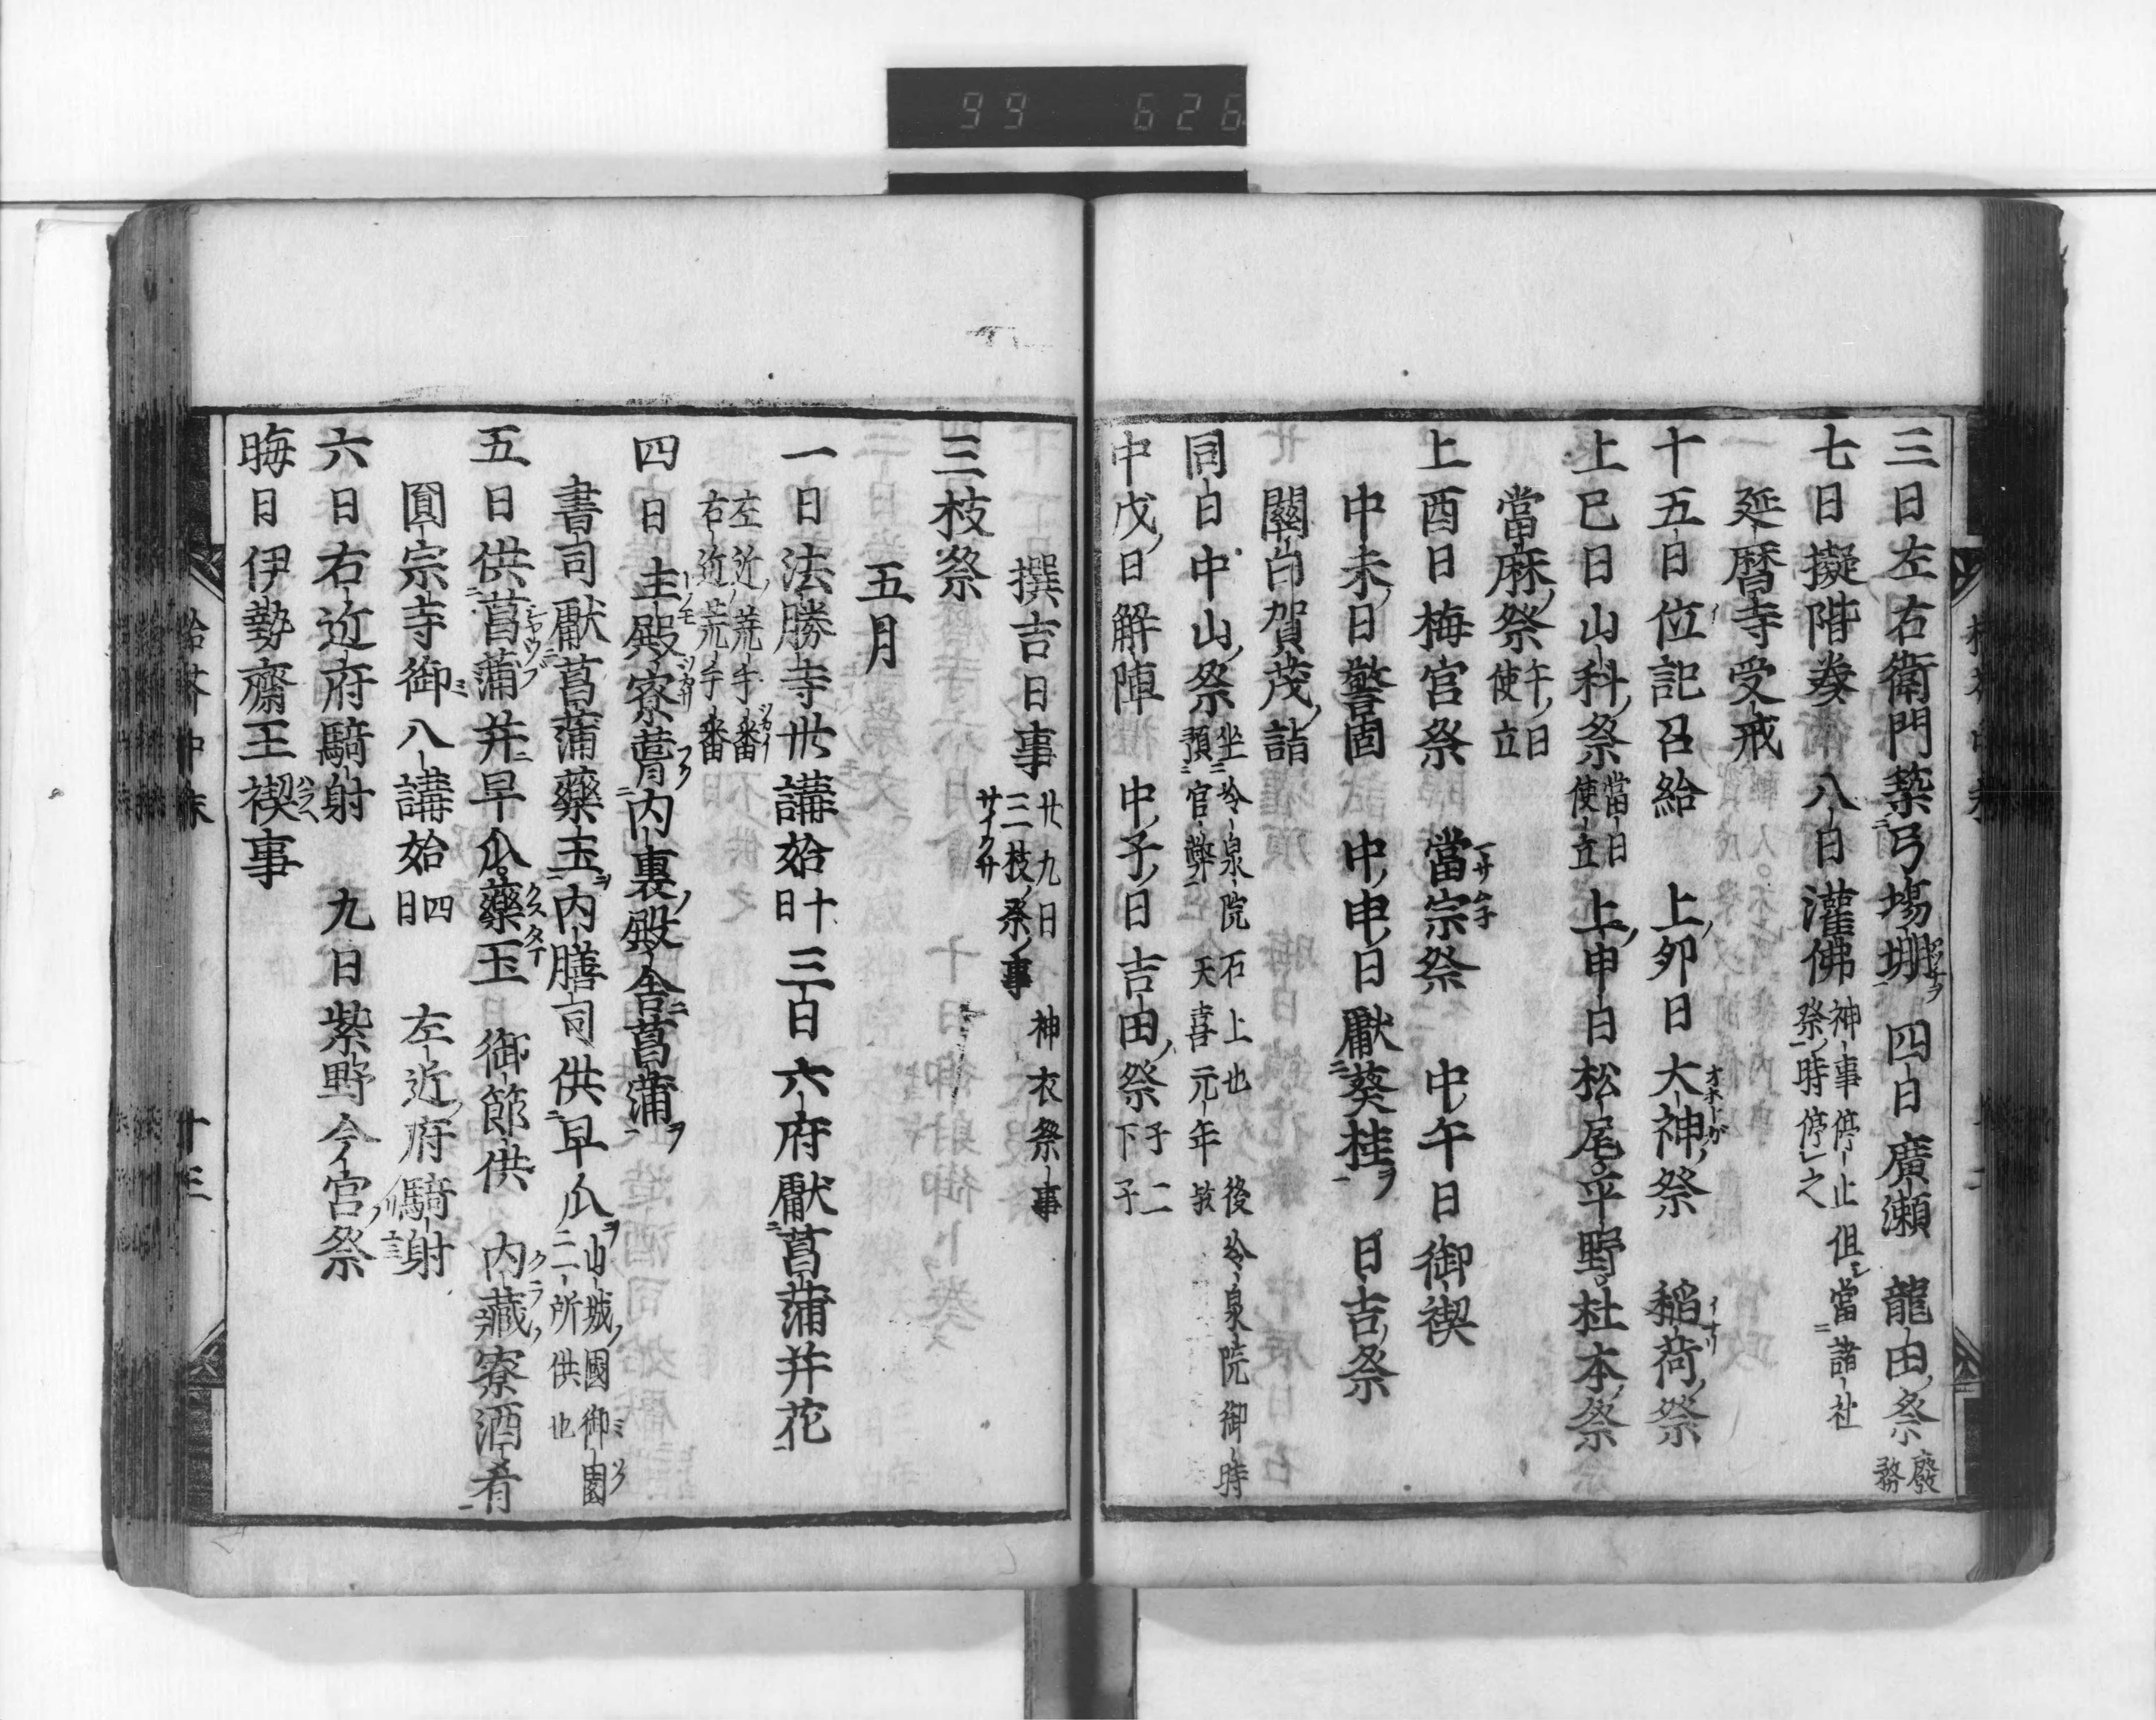 99 626
三日左右衛門築弓場堋 四日廣瀬 龍田祭 廢務
七日擬階奏 八日灌佛 神事停止但當諸社祭時停之
延暦寺受戒
十五日位記召給 上卯日大神祭 稲荷祭
上巳日山科祭 當日使立 上申日松尾平野杜本祭
當麻祭 午日使立
上酉日梅宮祭 當宗祭 中午日御禊
中未日警固 中申日獻葵桂 日吉祭
關白賀茂詣
同日中山祭 坐冷泉院石上也後冷泉院御時預官弊天喜元年
中戌日解陣 中子日吉田祭 子二下子
撰吉日事 廿九日神衣祭事三枝祭事
三枝祭
五月
一日法勝寺卅講始 十日 三日六府獻菖蒲并花
左近荒手番
右近荒手番
四日主殿寮葺内裏殿舎菖蒲
書司獻菖蒲藥玉内膳司供早瓜 山城國御園二所供也
五日供菖蒲并早瓜藥玉 御節供 内藏寮酒肴
圓宗寺御八講始 四日 左近府騎射
六日右近府騎射 九日紫野今宮祭
晦日伊勢齋王禊事
拾芥中末 十三